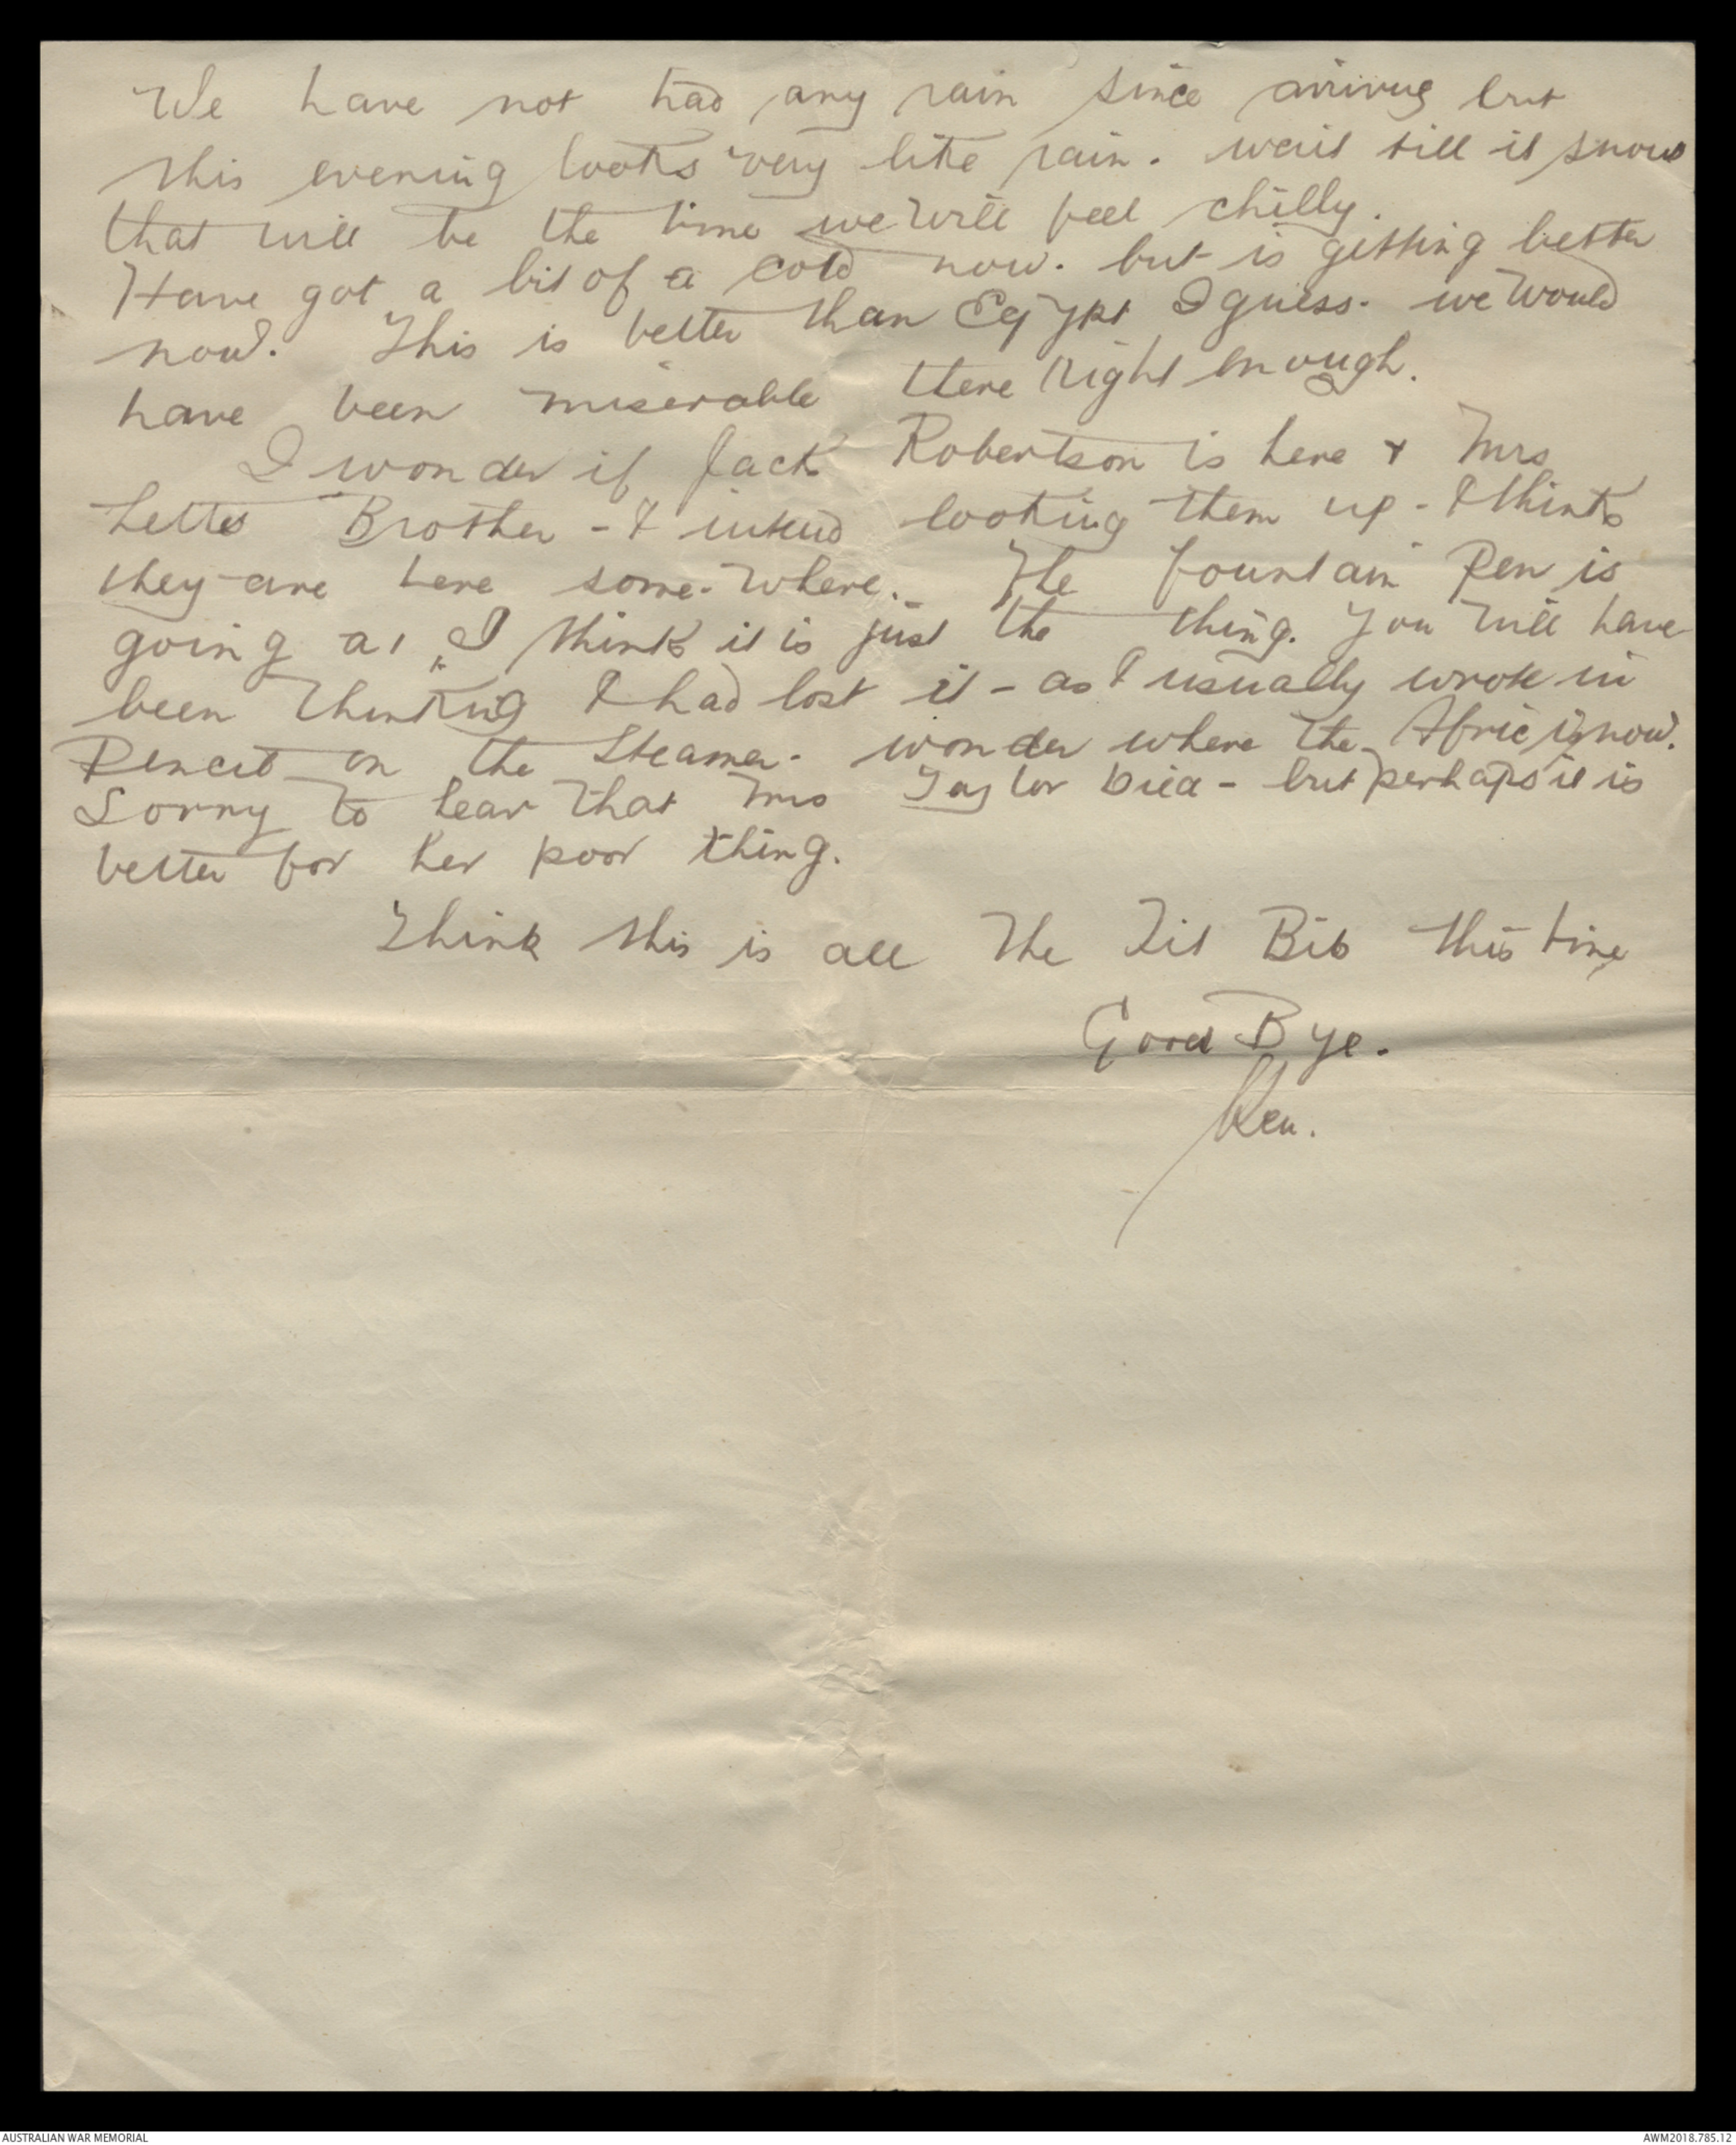 We have not had any rain since arriving but
this evening looks very like rain. wait till it snows
that will be the time we will feel chilly.
Have got a bit of a cold now. but is getting better
now. This is better than Egypt I guess. we would
have been miserable there right enough.
I wonder if Jack Robertson is here & Mrs
Brother - I intend looking them up - I think
they are here some-where. The Fountain Pen is
going a1, I think it is just the thing. You will have
been thinking I had lost it - as I usually wrote in
Pencil on the Steamer. wonder where the Afric is now.
Sorry to hear that Mrs Taylor Died - but perhaps it is
better for her poor thing.
Think this is all The Tit Bits this time
Good Bye.
Ken.
AUSTRALIAN WAR MEMORIAL
AWM2018.785.12